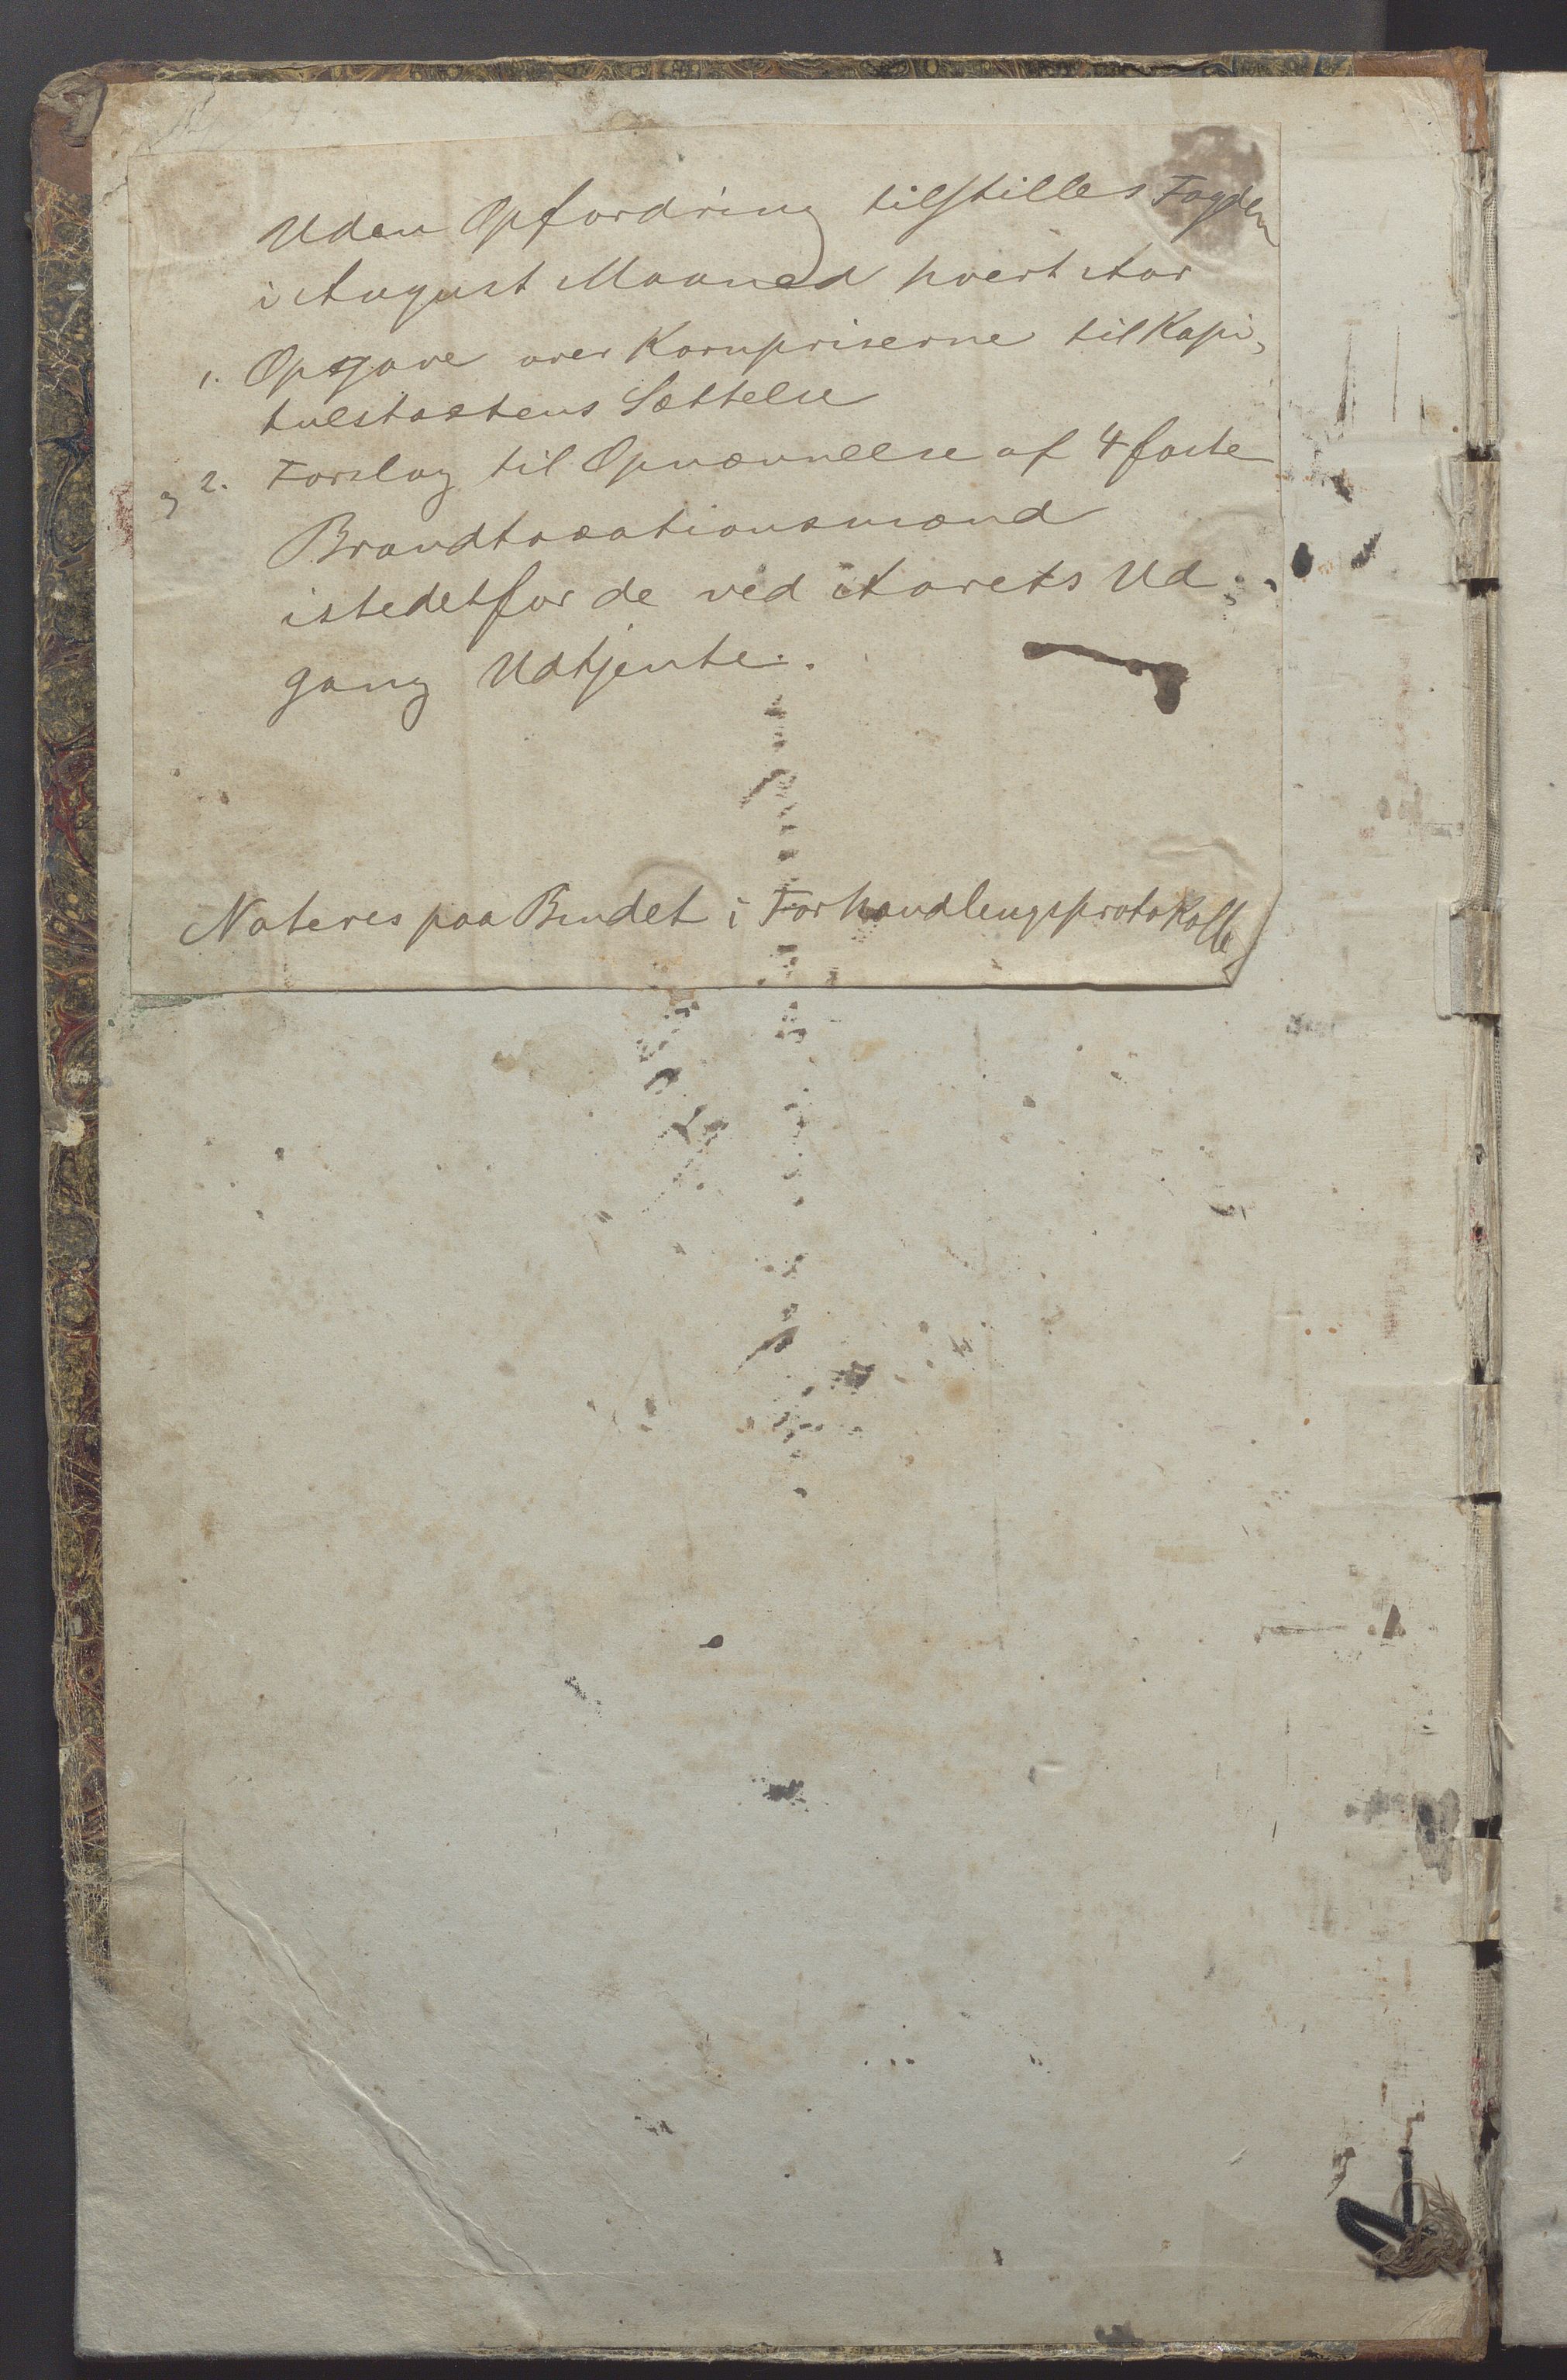 Uden Opfordring tilstilles Fogden
i August Maaned hvert Aar
1. Opgave over Kornpriserne til Kapi-
tulstaxtens Sættelse
2. Forslag til Opnævnelse af 4 faste
Brandtaxationsmænd
istedetfor de ved Aarets Ud-
gang Udtjente.
Noteres paa Bindet i Forhandlingsprotokolle